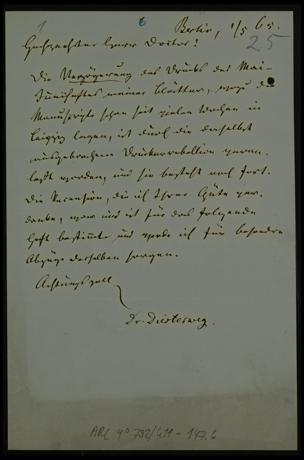 1
6
Berlin, 1/5 65.
25
Hochgeehrter Herr Doctor!
Die Verzögerung des Drucks des Mai-
Juniheftes meiner Blätter, wozu die
Manuscripte schon seit vielen Wochen in
Leipzig lagen, ist durch die daselbst
ausgebrochene Druckerrebellion veran-
laßt worden, und sie besteht noch fort.
Die Recension, die ich Ihrer Güte ver-
danke, war und ist für das folgende
Heft bestimmt und werde ich für besondere
Abzüge derselben sorgen.
Achtungsvoll
Dr. Diesterweg.
ARC 4° 792/G11 - 147.6